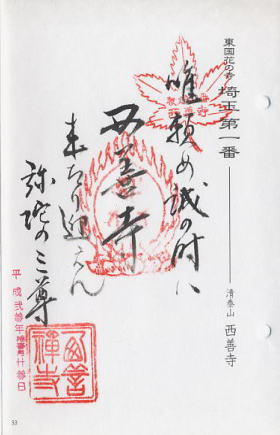 東国花の寺 埼玉第一番 清泰山 西善寺
唯頼め誠の時ハ
西善寺
来たり迎えん
弥陀の三尊
平成弐拾年
西善禅寺
33